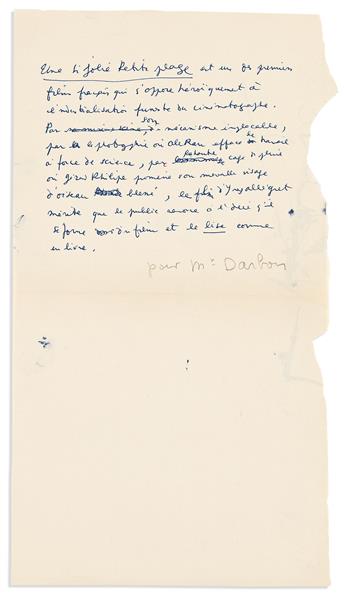 Une si jolie Petite plage est un des premiers
films français qui s'oppose héroïquement à
l'industrialisation funeste du cinématographe.
Par son mécanisme implacable,
par la photographie où Alekan efface le travail
à force de science, par
où Gérard Philipe promène son nouvelle visage
d'oiseau blessé, le film d'Yves Allégret
mérite que le public renonce à l'idée qu'il
se forme du film et le lise comme
un livre.
pour Mr Darbon